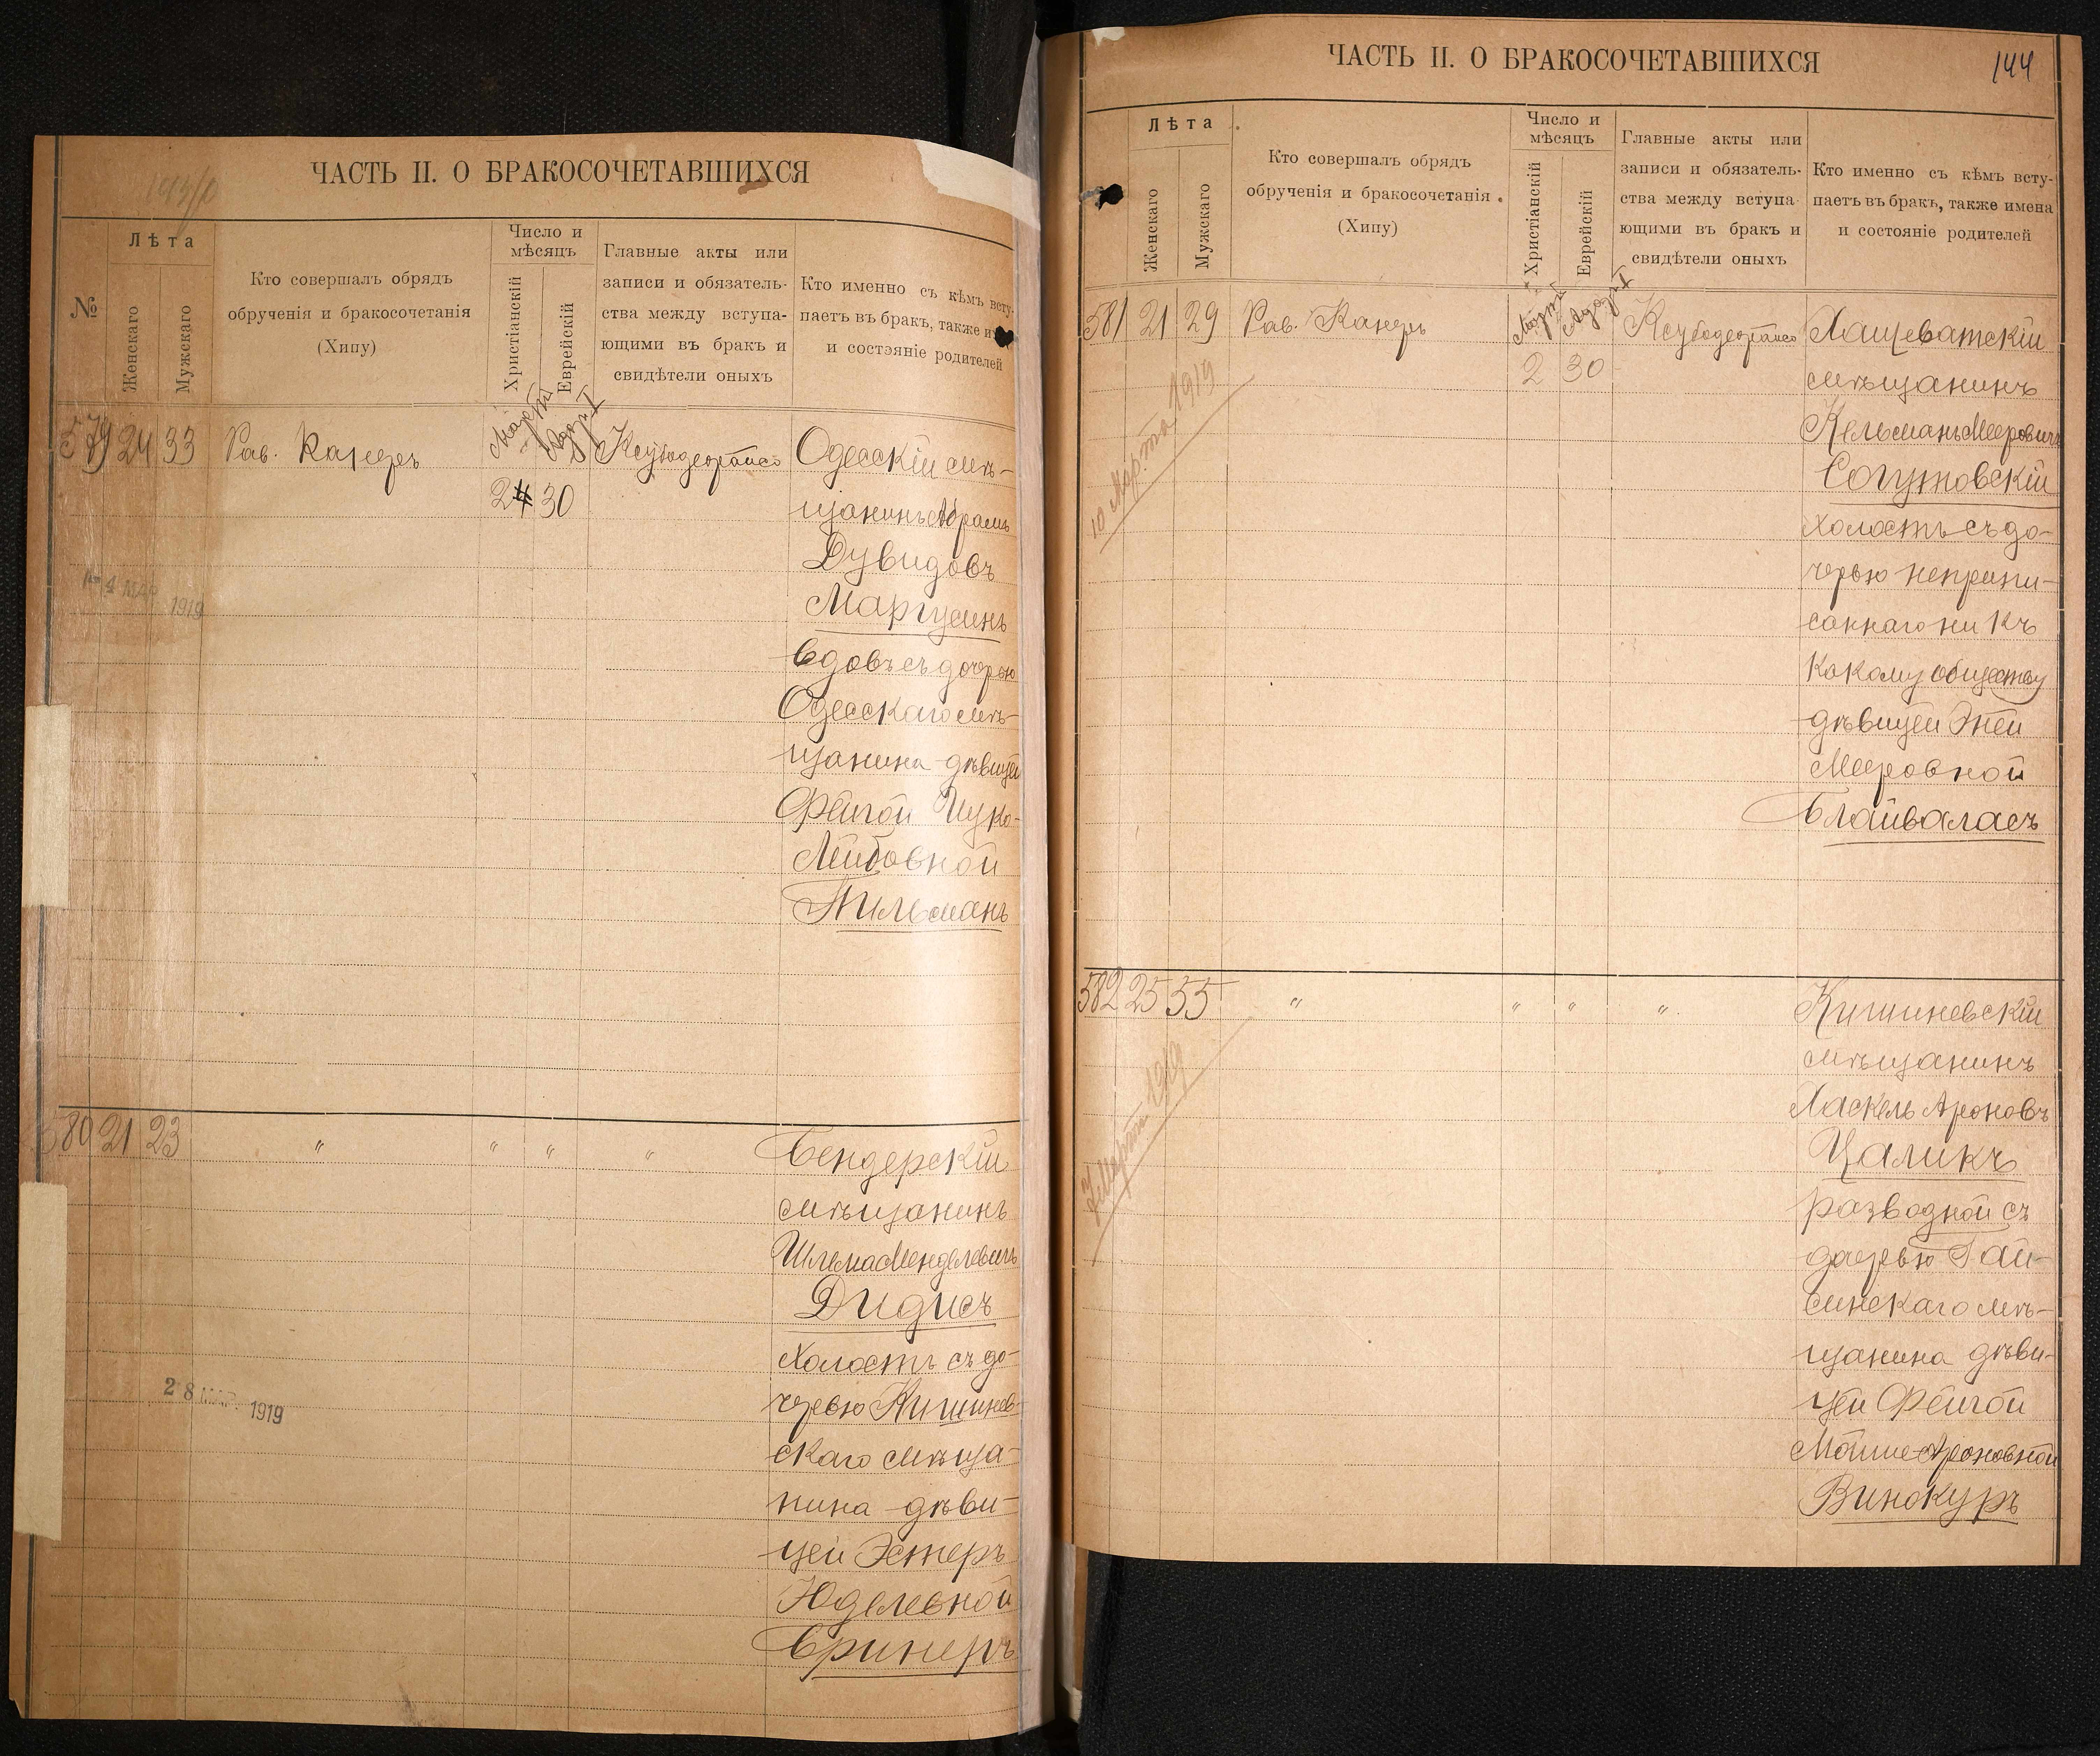 ЧАСТЬ II. О БРАКОСОЧЕТАВШИХСЯ
№
Лѣта
Женскаго
Мужскаго
Кто совершалъ обрядъ
обрученія и бракосочетанія
(Хипу)
Число и
мѣсяцъ
Христіанскій
Еврейскій
Главные акты или
записи и обязатель-
ства между вступа-
ющими въ бракъ и
свидѣтели оныхъ
Кто именно съ кѣмъ всту-
паетъ въ бракъ, также
и состояніе родителей
579 24 33 Рав. Канеръ
Мартъ
Адаръ I
2 30
Одесскій мѣ-
щанинъ Абрамъ
Дувидовъ
Маргулинъ
вдовъ съ дочерью
Одесскаго мѣ-
щанина дѣвицей
Фейгой Ицко-
Лейбовной
Тильманъ
4 МАР 1919
580 21 23 " " " "
Бендерскій
мѣщанинъ
Шлема Менделевичъ
Дидисъ
холостъ съ до-
черью Кишинев-
скаго мѣща-
нина дѣви-
цей Эстеръ
Юделевной
Бринеръ
28 МАР. 1919
ЧАСТЬ II. О БРАКОСОЧЕТАВШИХСЯ
144
Лѣта
Женскаго
Мужскаго
Кто совершалъ обрядъ
обрученія и бракосочетанія
(Хипу)
Число и
мѣсяцъ
Христіанскій
Еврейскій
Главные акты или
записи и обязатель-
ства между вступа-
ющими въ бракъ и
свидѣтели оныхъ
Кто именно съ кѣмъ всту-
паетъ въ бракъ, также имена
и состояніе родителей
581 21 29 Рав. Канеръ
Мартъ
Адаръ I
2 30
Хащеватскій
мѣщанинъ
Кельманъ Мееровичъ
Согутовскій
холостъ съ до-
черью неприпи-
саннаго ни къ
какому обществу
дѣвицей Эней
Мееровной
Блайваласъ
10 Марта 1919
582 25 35 " " " "
Кишиневскій
мѣщанинъ
Хаскель Ароновъ
Цаликъ
разводной съ
дочерью Гай-
синскаго мѣ-
щанина дѣви-
цей Фейгой
Мойше-Ароновной
Винокуръ
7 Марта 1919